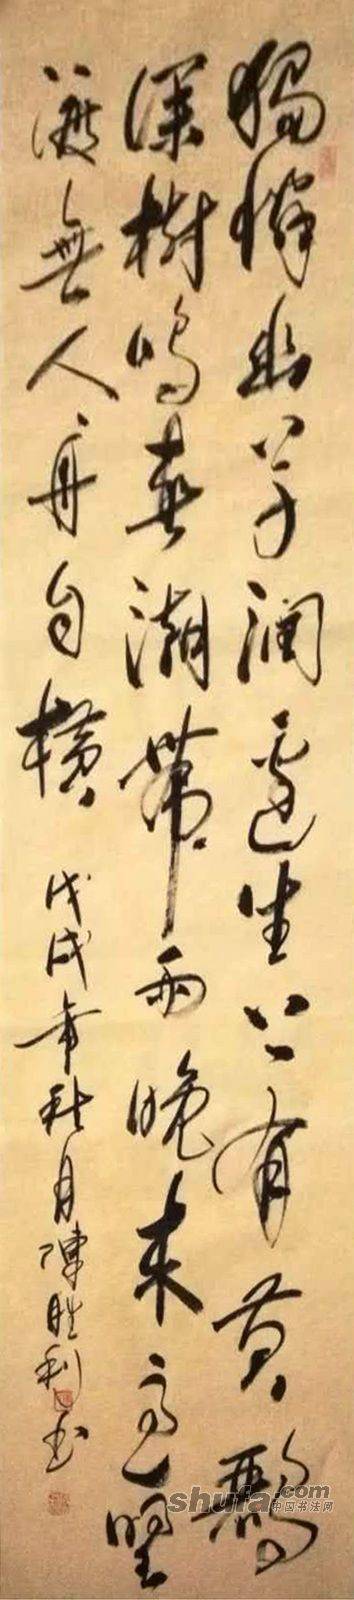 獨憐幽草澗邊生上有黃鸝
深樹鳴春潮帶雨晚來急野
渡無人舟自橫
戊戌年秋月陳胜利書
shufa.com
中国书法网